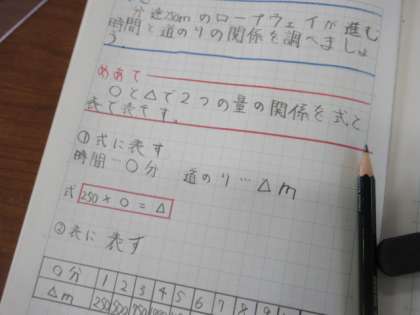 分速250mのロープウェイが進む
時間と道のりの関係を調べましょ
う。
めあて
○と△で2つの量の関係を式と
表で表す。
①式に表す
時間…○分 道のり…△m
式 250×○=△
②表に表す
○分 1 2 3 4 5 6 7 8 9
△m 250 500 750